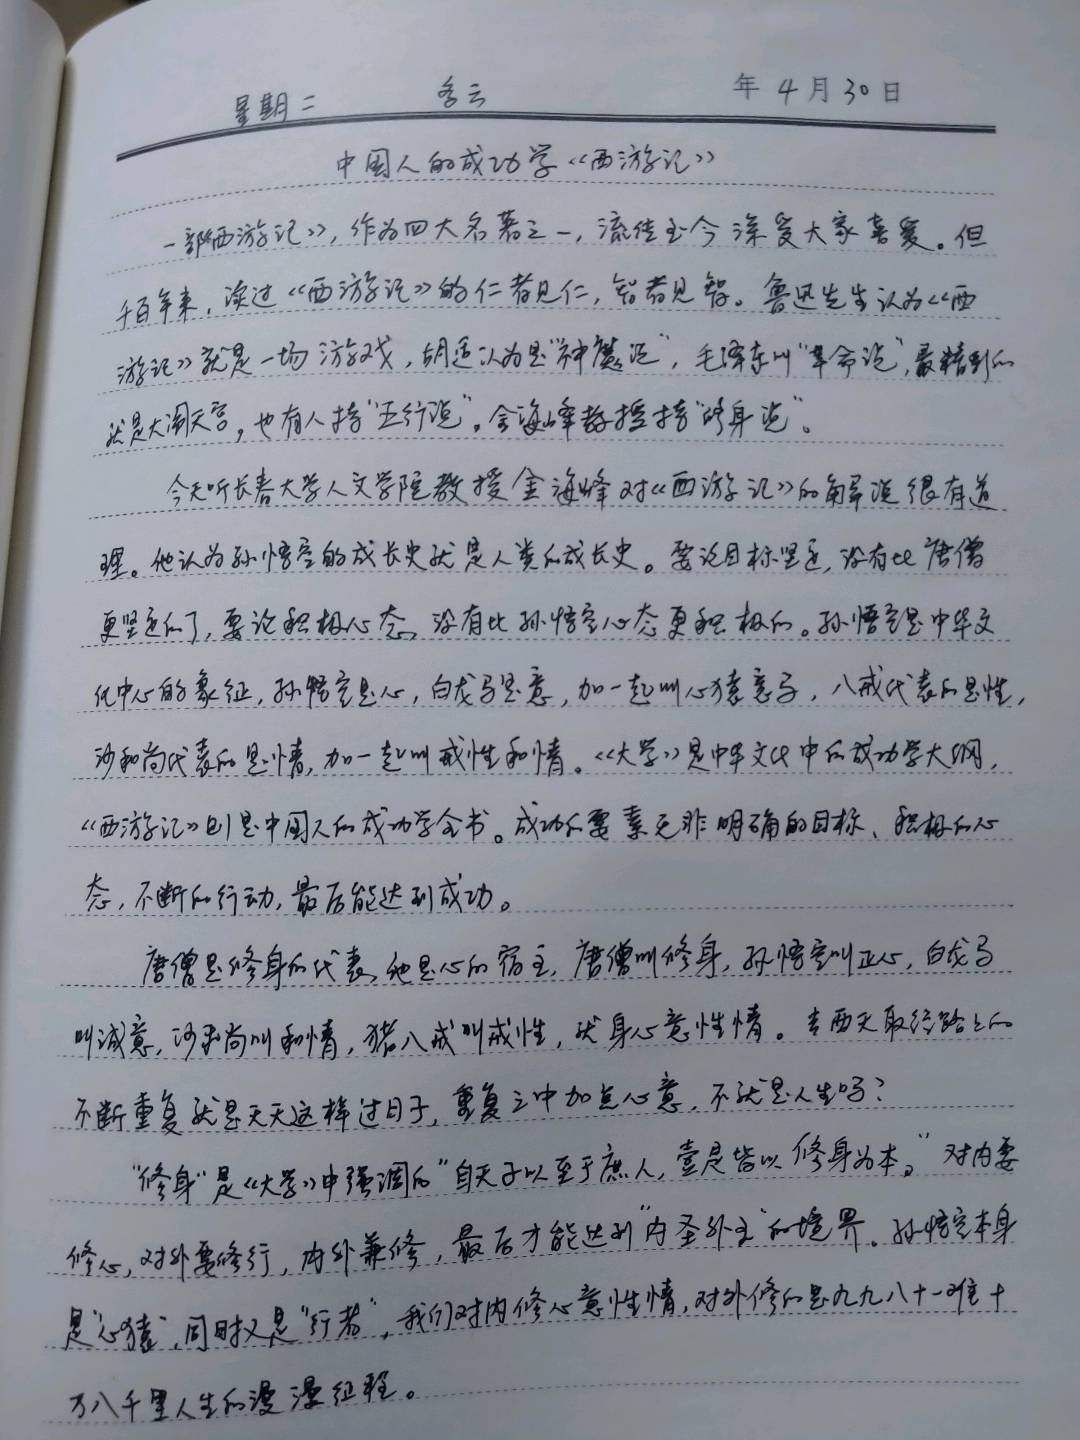 星期二 多云 年4月30日
中国人的成功学《西游记》
一部《西游记》，作为四大名著之一，流传至今深受大家喜爱。但
千百年来，读过《西游记》的仁者见仁，智者见智。鲁迅先生认为《西
游记》就是一场游戏，胡适认为是"神魔说"，毛泽东叫"革命说"，最精彩的
就是大闹天宫，也有人持"五行说"。金海峰教授持"修身说"。
今天听长春大学人文学院教授金海峰对《西游记》的解说很有道
理。他认为孙悟空的成长史就是人类的成长史。要论目标坚定，没有比唐僧
更坚定的了，要论积极心态，没有比孙悟空心态更积极的。孙悟空是中华文
化中心的象征，孙悟空是心，白龙马是意，加一起叫心猿意马，八戒代表的是性，
沙和尚代表的是情，加一起叫戒性和情。《大学》是中华文化中的成功学大纲，
《西游记》则是中国人的成功学全书。成功的要素无非明确的目标、积极的心
态，不断的行动，最后能达到成功。
唐僧是修身的代表，他是心的宿主，唐僧叫修身，孙悟空叫正心，白龙马
叫诚意，沙和尚叫和情，猪八戒叫戒性，就身心意性情。去西天取经路上的
不断重复就是天天这样过日子，重复之中加点心意，不就是人生吗？
"修身"是《大学》中强调的"自天子以至于庶人，壹是皆以修身为本。"对内要
修心，对外要修行，内外兼修，最后才能达到"内圣外王"的境界。孙悟空本身
是"心猿"，同时又是"行者"，我们对内修心意性情，对外修的是九九八十一难十
万八千里人生的漫漫征程。